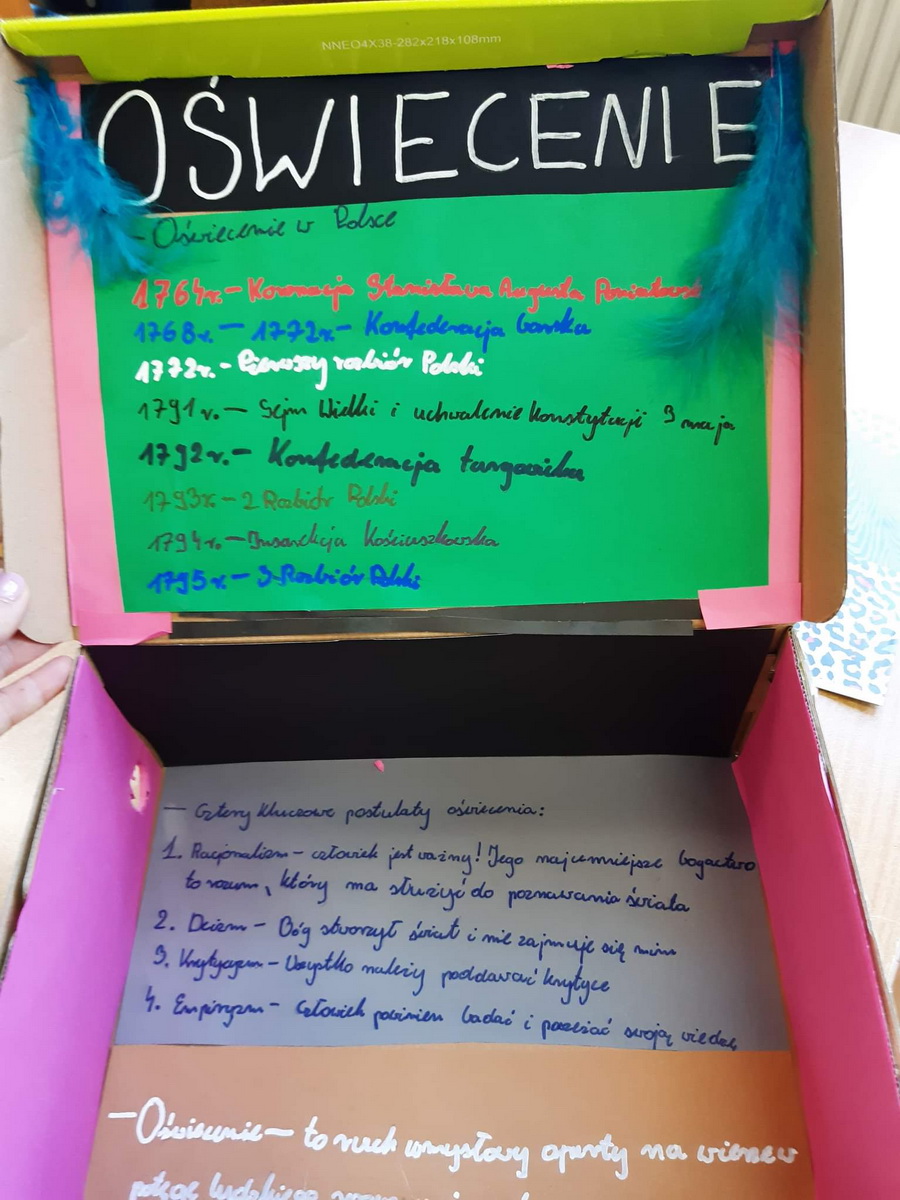 NNEO4X38-282x218x108mm
OŚWIECENIE
- Oświecenie w Polsce
1764r. - Koronacja Stanisława Augusta Poniatows
1768r. - 1772r. - Konfederacja barska
1772r. - Pierwszy rozbiór Polski
1791r. - Sejm Wielki i uchwalenie Konstytucji 3 maja
1792r. - Konfederacja targowicka
1793r. - 2 Rozbiór Polski
1794r. - Insurekcja Kościuszkowska
1795r. - 3 Rozbiór Polski
- Cztery kluczowe postulaty oświecenia:
1. Racjonalizm - człowiek jest ważny! Jego najcenniejsze bogactwo
to rozum, który ma służyć do poznawania świata
2. Deizm - Bóg stworzył świat i nie zajmuje się nim
3. Krytycyzm - Wszystko należy poddawać krytyce
4. Empiryzm - Człowiek powinien badać i swoją wiedzę
- Oświecenie - to ruch umysłowy oparty na wierze w
potęgę ludzkiego